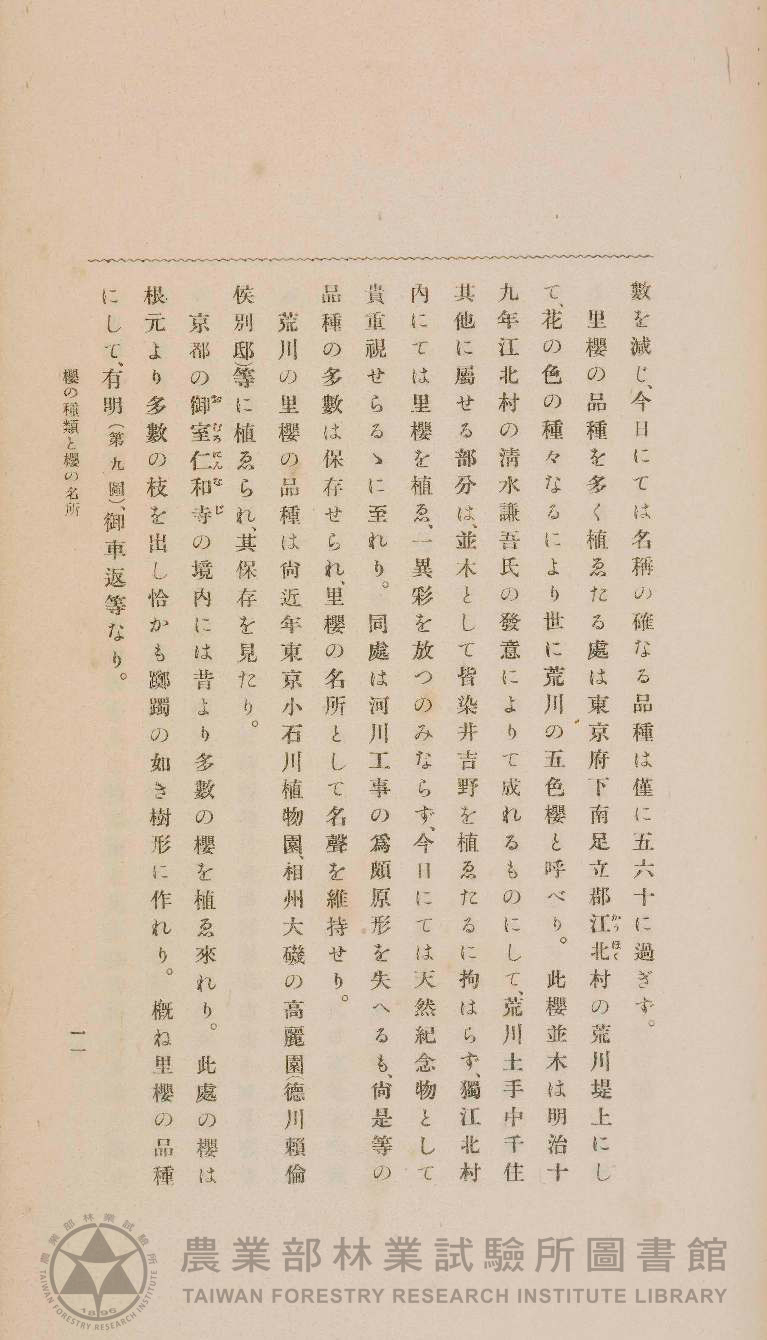 數を減じ、今日にては名稱の確なる品種は僅に五六十に過ぎず。
里櫻の品種を多く植ゑたる處は東京府下南足立郡江北村の荒川堤上にし
かうほく
て、花の色の種々なるにより世に荒川の五色櫻と呼べり。此櫻並木は明治十
九年江北村の淸水謙吾氏の發意によりて成れるものにして、荒川土手中千住
其他に屬せる部分は、並木として皆染井吉野を植ゑたるに拘はらず、獨江北村
內にては里櫻を植ゑ、一異彩を放つのみならず、今日にては天然紀念物として
貴重視せらるゝに至れり。同處は河川工事の爲頗原形を失へるも、尙是等の
品種の多數は保存せられ、里櫻の名所として名聲を維持せり。
荒川の里櫻の品種は尙近年東京小石川植物園、相州大磯の高麗園(德川賴倫
侯別邸)等に植ゑられ、其保存を見たり。
京都の御室仁和寺の境內には昔より多數の櫻を植ゑ來れり。此處の櫻は
おむろにんなじ
根元より多數の枝を出し恰かも躑躅の如き樹形に作れり。槪ね里櫻の品種
にして、有明(第九圖)、御車返等なり。
櫻の種類と櫻の名所
一一
農業部林業試驗所圖書館
TAIWAN FORESTRY RESEARCH INSTITUTE LIBRARY
農業部林業試驗所
TAIWAN FORESTRY RESEARCH INSTITUTE
1896